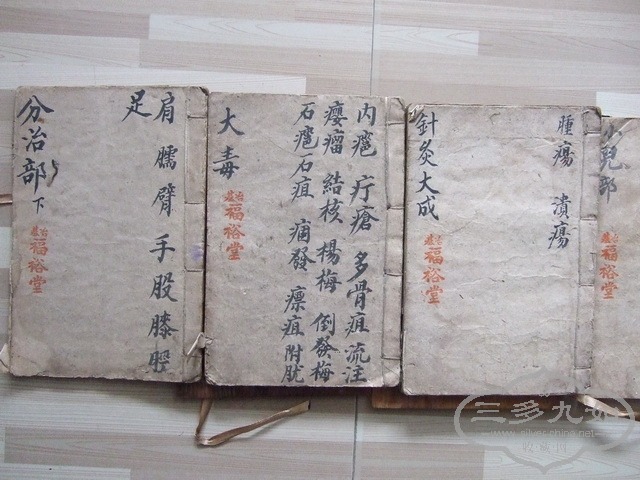 兒部
福裕堂
腫瘍 潰瘍
針灸大成
福裕堂
内癰 疔瘡 多骨疽 流注
瘿瘤 結核 楊梅 倒發梅
石癰石疽 痈發 瘭疽 附
大毒
福裕堂
肩臑臂手股膝
足
分治部下
福裕堂
三多九